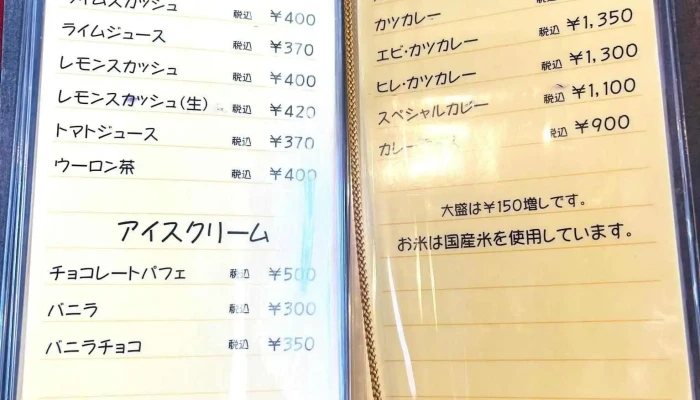 ライムスカッシュ 税込 ¥400
ライムジュース 税込 ¥370
レモンスカッシュ 税込 ¥400
レモンスカッシュ(生) 税込 ¥420
トマトジュース 税込 ¥370
ウーロン茶 税込 ¥400
アイスクリーム
チョコレートパフェ 税込 ¥500
バニラ 税込 ¥300
バニラチョコ 税込 ¥350
カツカレー
エビ・カツカレー 税込 ¥1,350
ヒレ・カツカレー 税込 ¥1,300
スペシャルカレー 税込 ¥1,100
カレー 税込 ¥900
大盛は¥150増しです。
お米は国産米を使用しています。